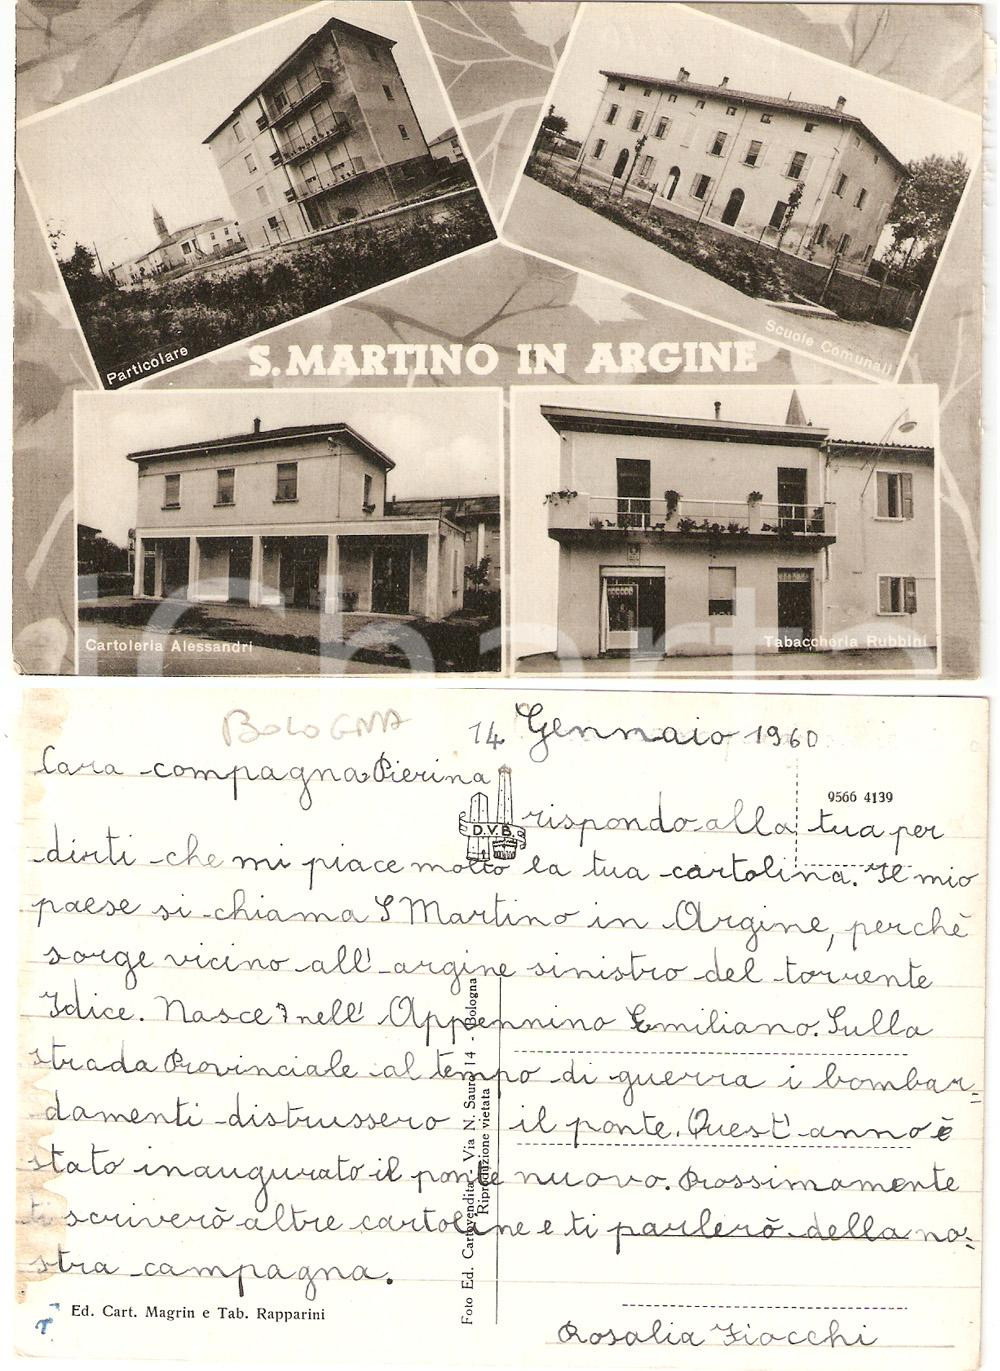 Particolare
Scuole Comunali
S. MARTINO IN ARGINE
Cartoleria Alessandri
Tabaccheria Rubbini
BOLOGNA
14 Gennaio 1960
Cara compagna Pierina
9566 4139
D.V.B.
rispondo alla tua per
dirti che mi piace molto la tua cartolina. Il mio
paese si chiama S Martino in Argine, perchè
sorge vicino all' argine sinistro del torrente
Idice. Nasce nell' Appennino Emiliano. Sulla
strada Provinciale al tempo di guerra i bombar=
damenti distrussero il ponte. Quest' anno è
stato inaugurato il ponte nuovo. Prossimamente
ti scriverò altre cartoline e ti parlerò della no=
stra campagna.
Foto Ed. Cartovendita - Via N. Sauro 14 - Bologna
Riproduzione vietata
Ed. Cart. Magrin e Tab. Rapparini
Rosalia Fiocchi